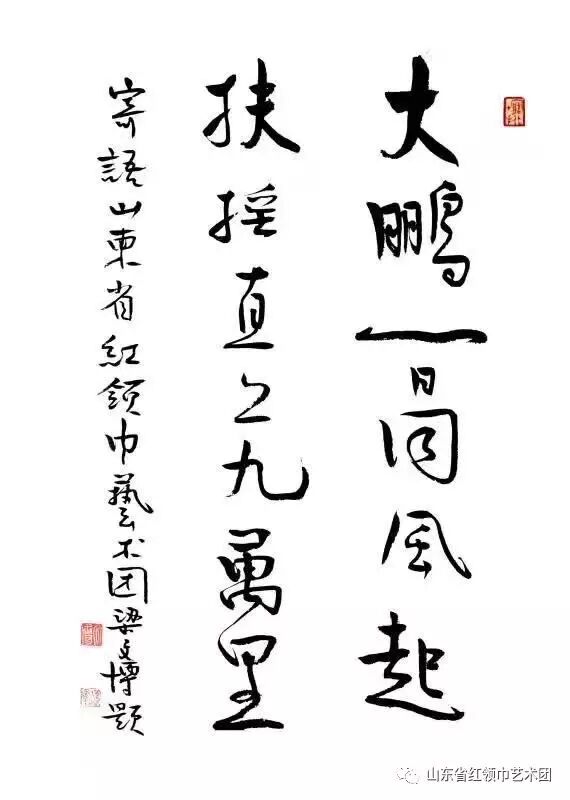 大鹏一日同风起
扶摇直上九萬里
寄語山東省紅領巾藝术团梁文博题
山东省红领巾艺术团